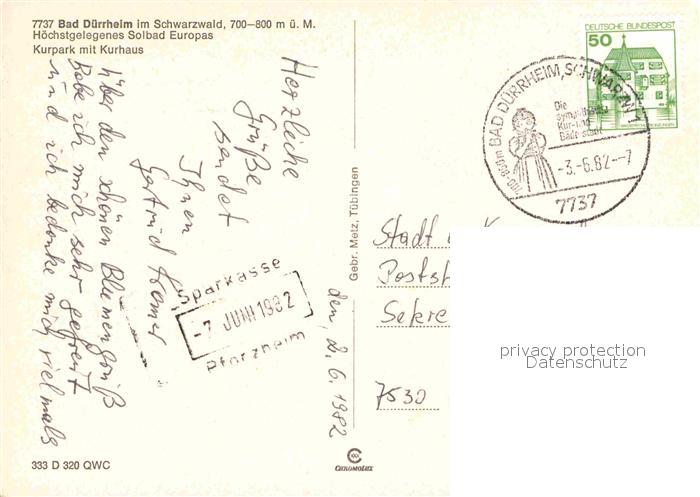 7737 Bad Dürrheim im Schwarzwald, 700–800 m ü. M.
Höchstgelegenes Solbad Europas
Kurpark mit Kurhaus
den, 2. 6. 1982
über den schönen Blumengruß
habe ich mich sehr gefreut
und ich bedanke mich vielmals
Herzliche
Grüße
sendet
Ihnen
Gertrud Kramer
Sparkasse
-7. JUNI 1982
Pforzheim
333 D 320 QWC
Gebr. Metz, Tübingen
CHROMOLUX
DEUTSCHE BUNDESPOST
50
BAD DÜRRHEIM, SCHWARZW 1
700-850 m
Die
sympathische
Kur- und
Bäderstadt
-3.-6.82--7
7737
Stadt
Postst
Sekre
7530
privacy protection
Datenschutz